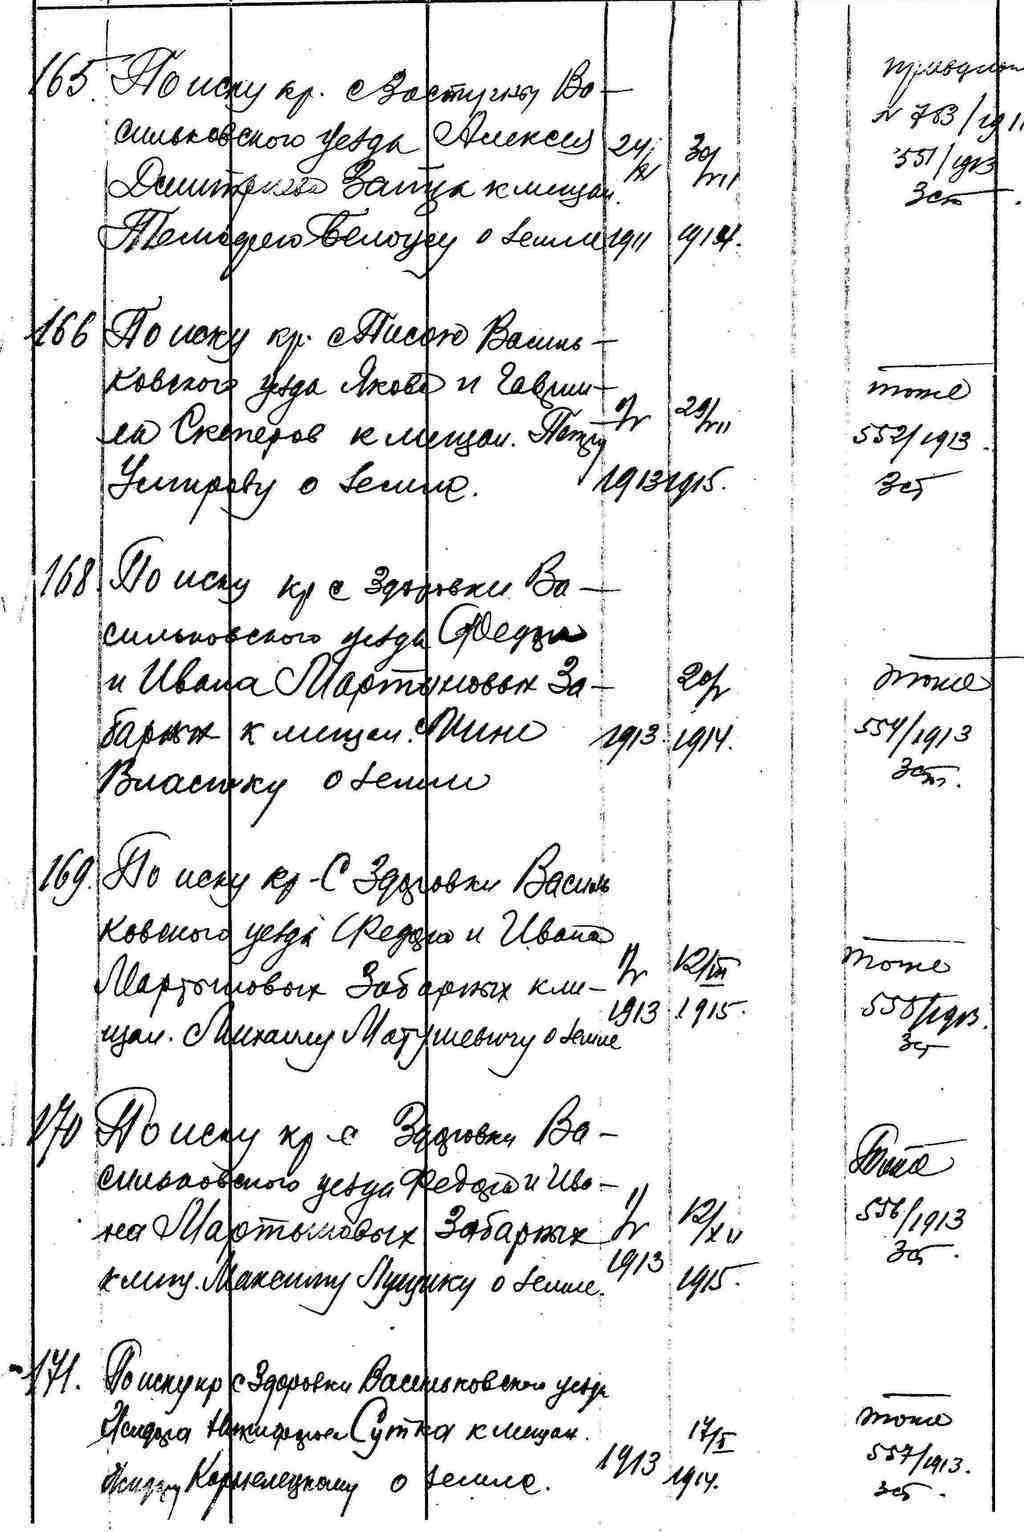 165. По иску кр. с Застугны Ва-
сильковского уезда Алексея
Дмитриева Заяца к мещан.
Темофею Белоусу о земле
24/IX 1911
30/VII 1914.
№ 763/1911
551/1913
3 ст.
166 По иску кр. с Тисок Василь-
ковского уезда Якова и Гаври-
ла Скочеров к мещан. Петру
о земле.
1/V 1913
29/VII 1915.
тоже
552/1913.
3 ст
168. По иску кр с Здоровки Ва-
сильковского уезда Федора
и Ивана Мартыновых За-
барных к мещан. Мине
Власюку о земле
1913.
20/V 1914.
тоже
554/1913
3 ст.
169. По иску кр-с Здоровки Василь
ковского уезда Федора и Ивана
Мартыновых Забарных к ме-
щан. Михаилу Матушевичу о земле
1/V 1913
12/III 1915.
тоже
555/1913.
3 ст
170 По иску кр-с Здоровки Ва-
сильковского уезда Федора и Ива-
на Мартыновых Забарных
к мещ. Максиму Лущику о земле.
1/V 1913
12/XII 1915.
556/1913
3 ст.
171. По иску кр с Здоровки Васильковского уезда
Сутка к мещан.
Корнелецкому о земле.
1913
17/I 1914.
тоже
557/1913.
3 ст.